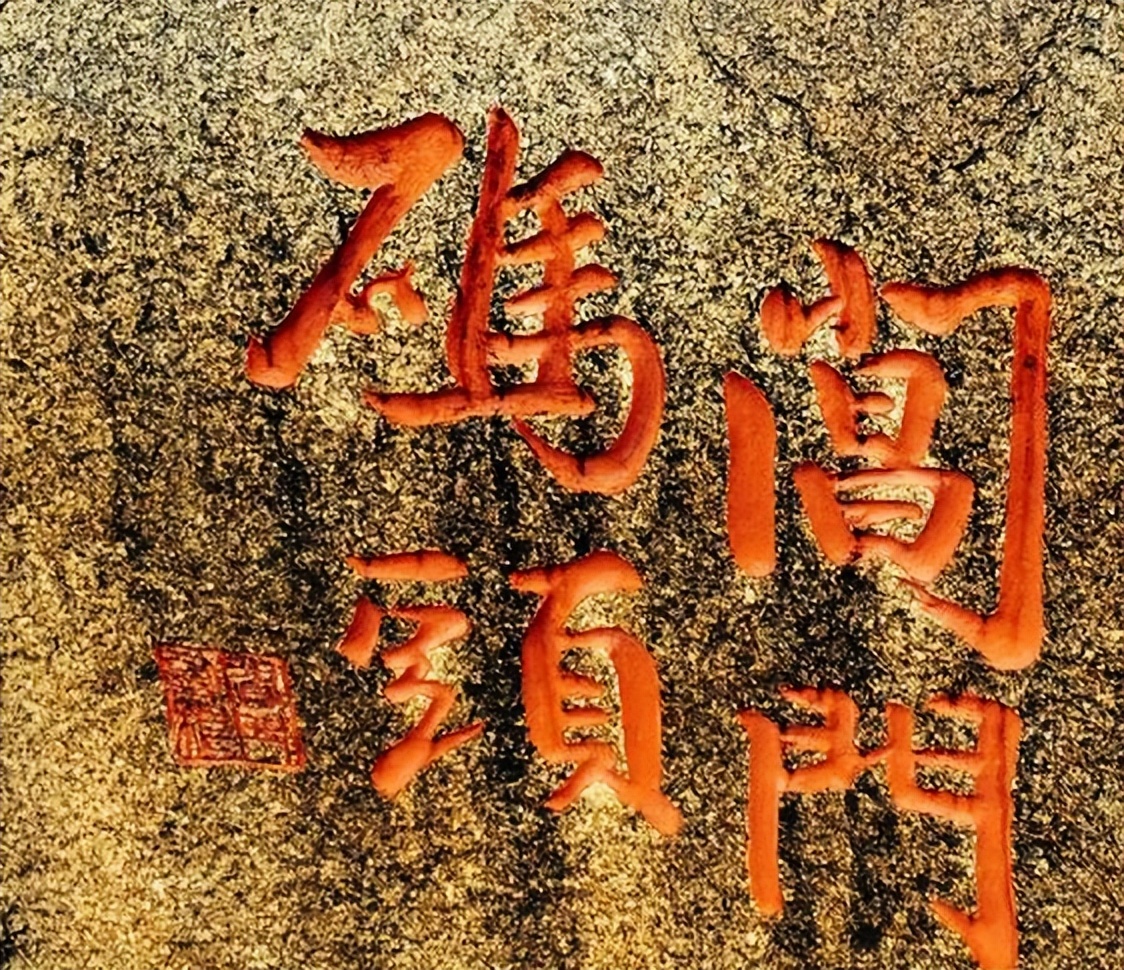 閶門
碼頭